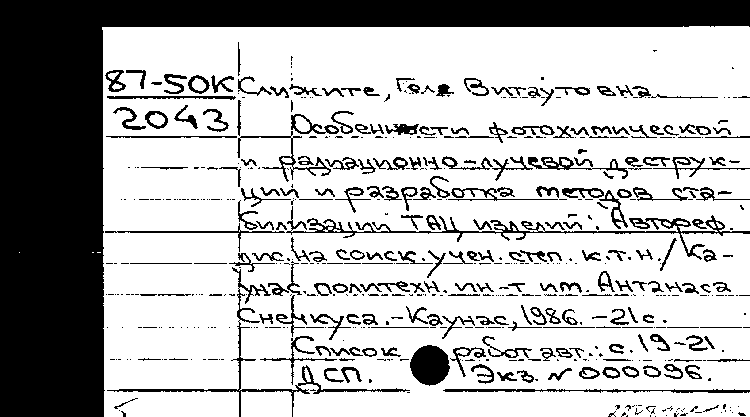 87-50К Слижите, Геле Витауто вна.
2043 Особенности фотохимической
и радиационно-лучевой деструк-
ции и разработка методов ста-
билизации ТАЦ изделий: Автореф.
дис. на соиск. учен. степ. к.т.н. / Ка-
унас. политехн. ин-т им. Антанаса
Снечкуса. - Каунас, 1986. - 21 с.
Список работ авт.: с. 19-21.
ДСП. Экз. N 000096.